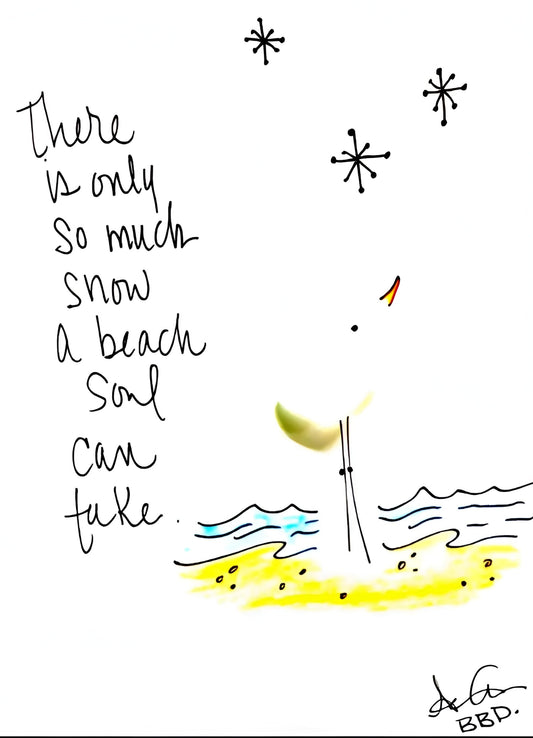 There
is only
so much
snow
a beach
soul
can
take.
BBD.